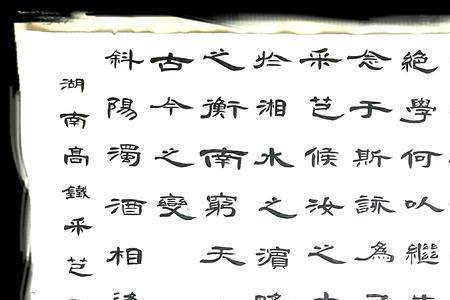 絕學何以繼
念于斯詠為
采芑候汝之
於湘水之濱
之衡南窮天
古今之變
斜陽濁酒相
湖南高鐵采芑